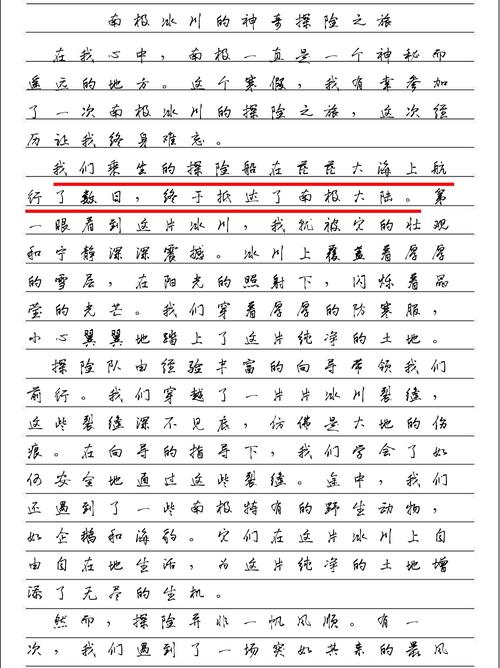 南极冰川的神奇探险之旅
在我心中，南极一直是一个神秘而
遥远的地方。这个寒假，我有幸参加
了一次南极冰川的探险之旅，这次经
历让我终身难忘。
我们乘坐的探险船在茫茫大海上航
行了数日，终于抵达了南极大陆。第
一眼看到这片冰川，我就被它的壮观
和宁静深深震撼。冰川上覆盖着厚厚
的雪层，在阳光的照射下，闪烁着晶
莹的光芒。我们穿着厚厚的防寒服，
小心翼翼地踏上了这片纯净的土地。
探险队由经验丰富的向导带领我们
前行。我们穿越了一片片冰川裂缝，
这些裂缝深不见底，仿佛是大地的伤
痕。在向导的指导下，我们学会了如
何安全地通过这些裂缝。途中，我们
还遇到了一些南极特有的野生动物，
如企鹅和海豹。它们在这片冰川上自
由自在地生活，为这片纯净的土地增
添了无尽的生机。
然而，探险并非一帆风顺。有一
次，我们遇到了一场突如其来的暴风